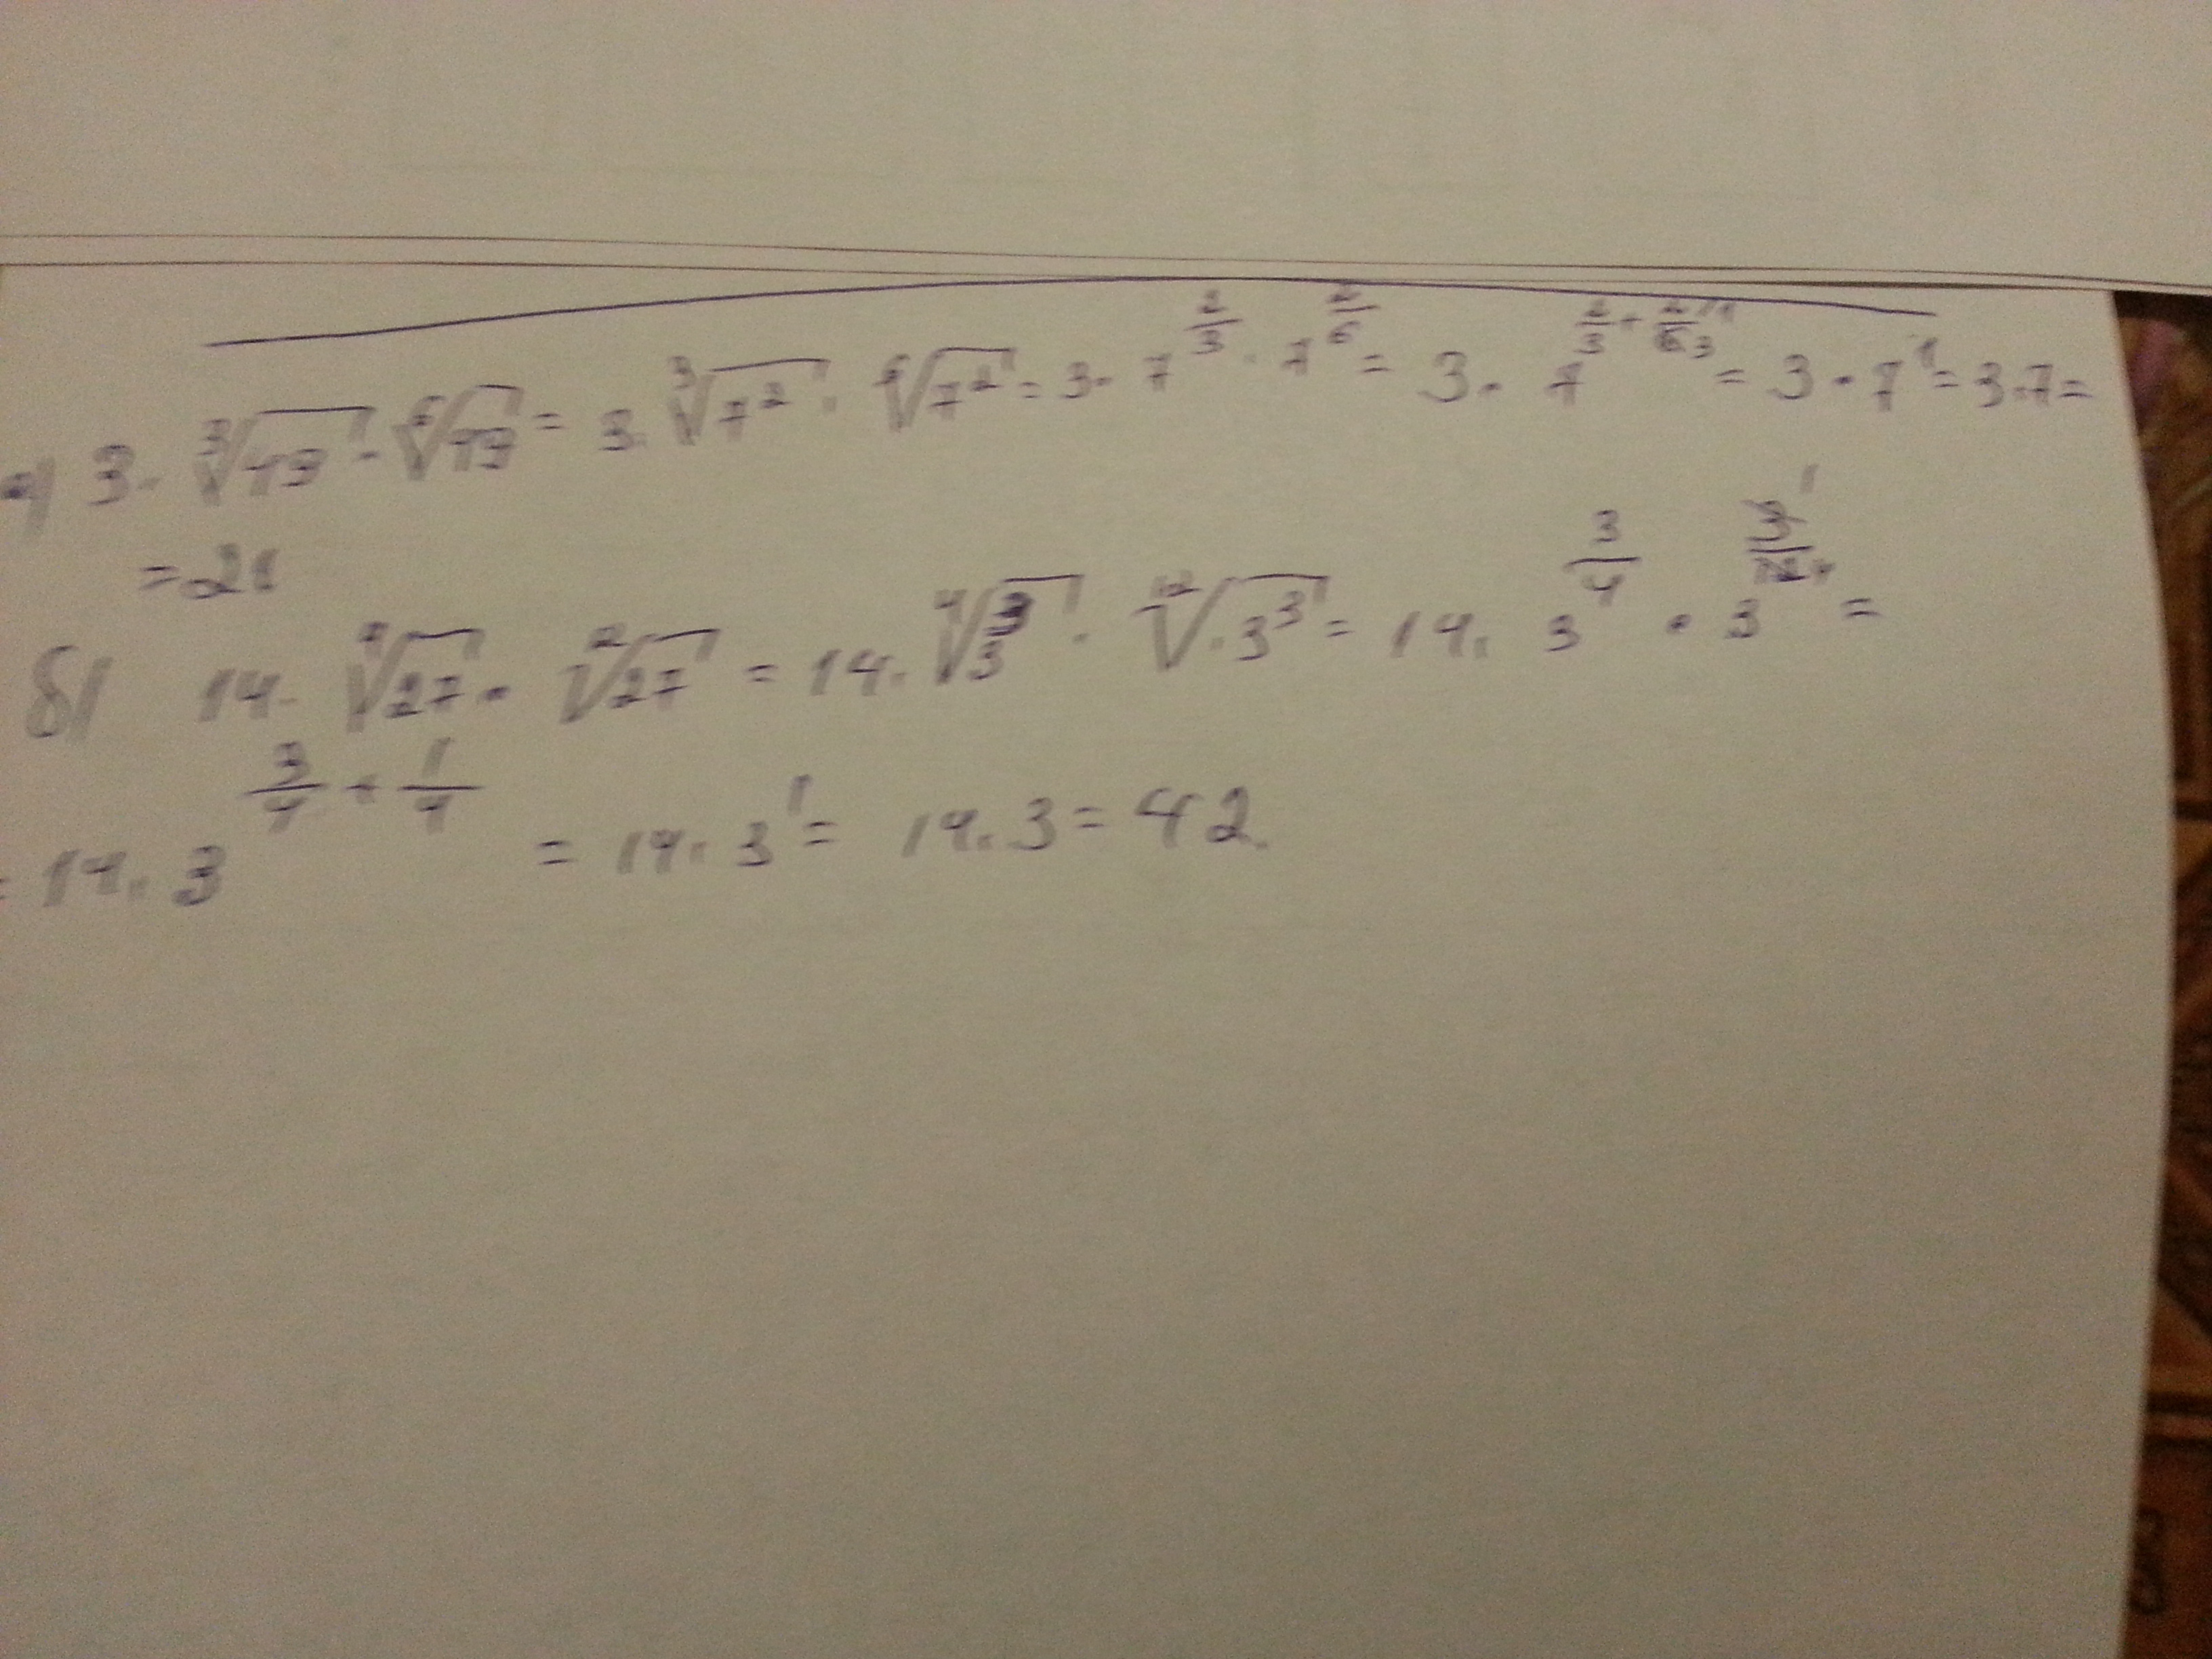 а) 3 · ∛49 · ⁶√49 = 3 · ∛7² · ⁶√7² = 3 · 7^(2/3) · 7^(2/6) = 3 · 7^(2/3 + 2/6) = 3 · 7¹ = 3·7 =
= 21
б) 14 · ⁴√27 · ¹²√27 = 14 · ⁴√3³ · ¹²√3³ = 14 · 3^(3/4) · 3^(3/12) =
= 14 · 3^(3/4 + 1/4) = 14 · 3¹ = 14 · 3 = 42.